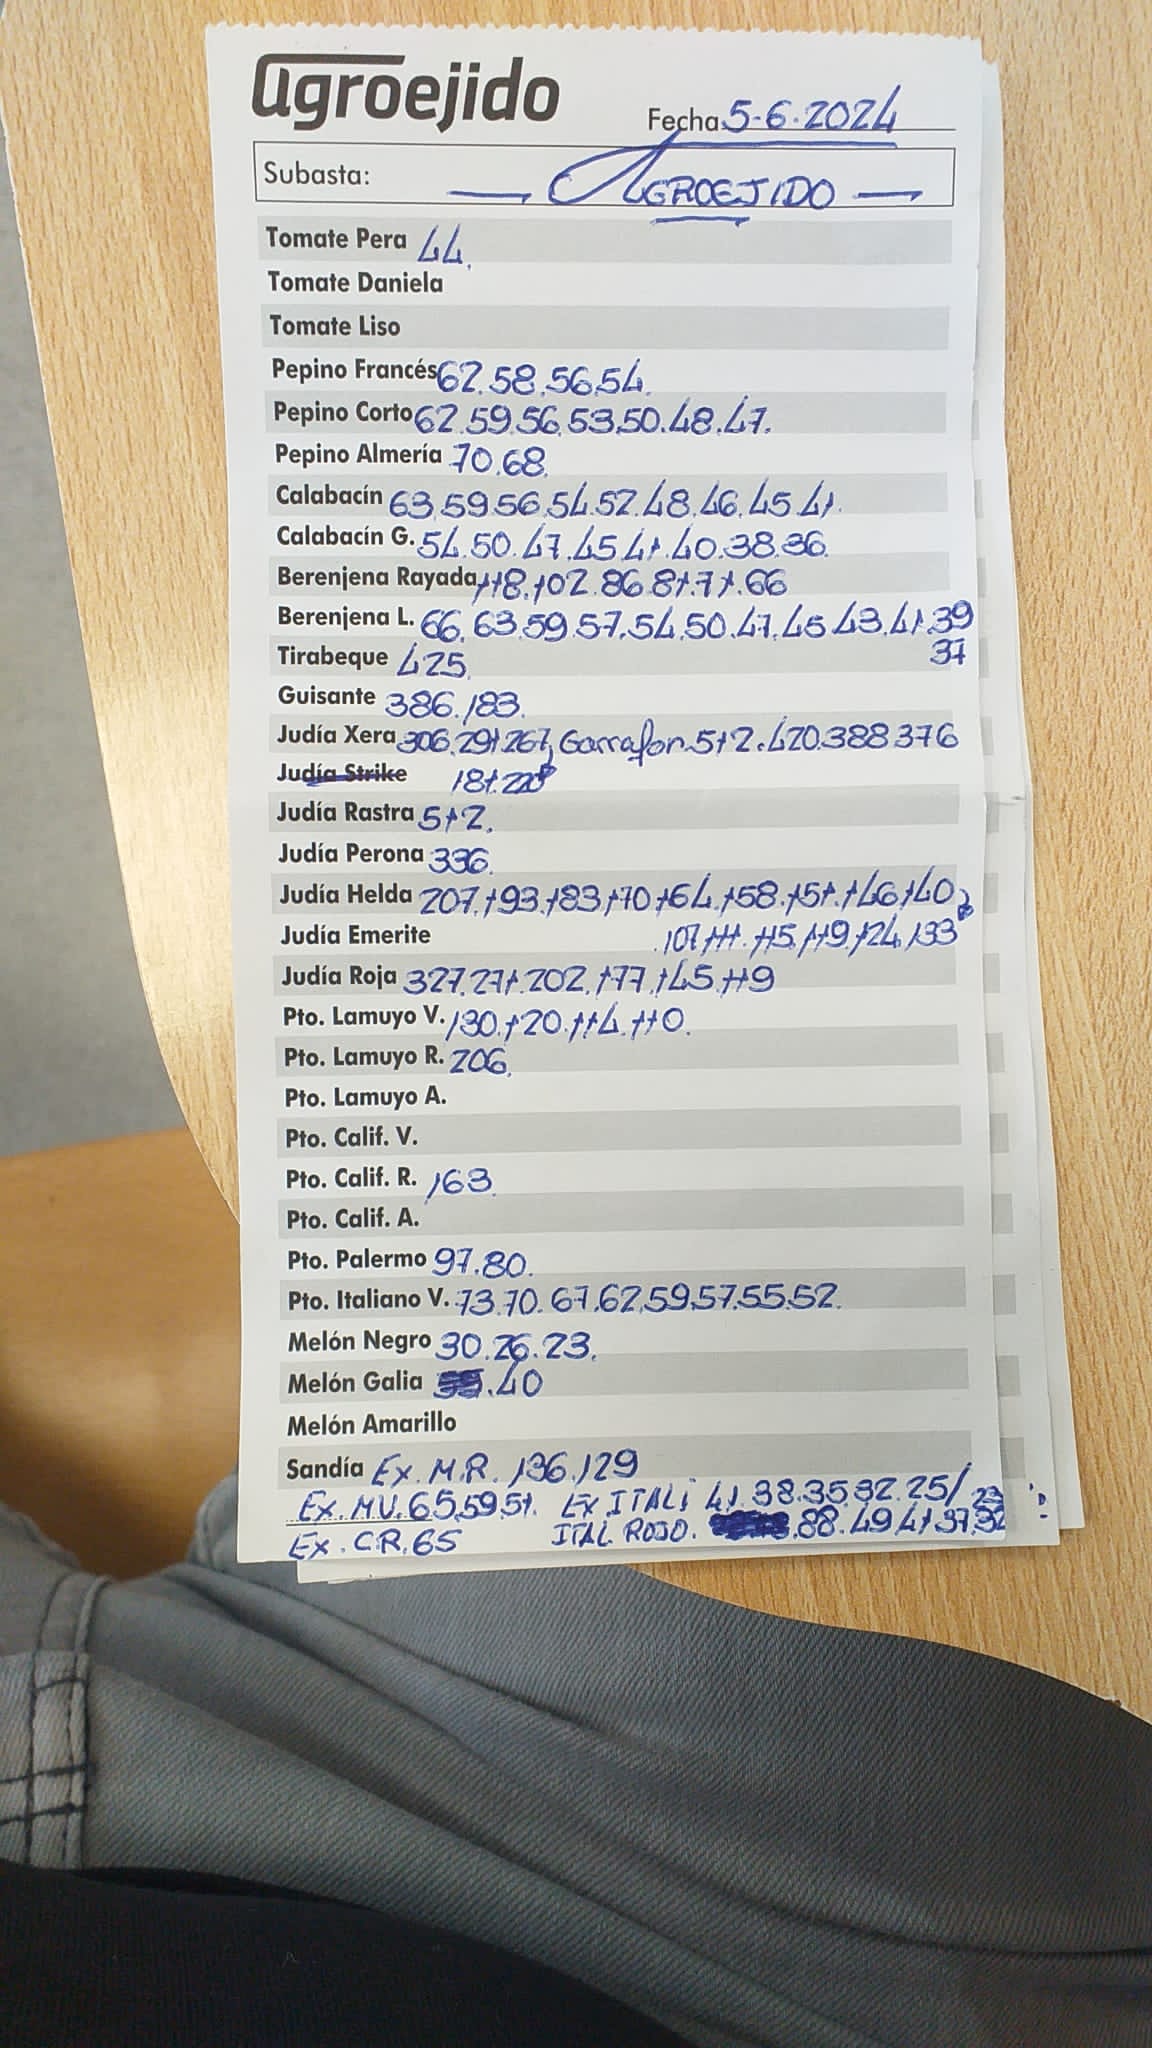 agroejido
Fecha 5-6-2024
Subasta: — AGROEJIDO —
Tomate Pera 44.
Tomate Daniela
Tomate Liso
Pepino Francés 62.58.56.54.
Pepino Corto 62.59.56.53.50.48.47.
Pepino Almería 70.68.
Calabacín 63.59.56.54.52.48.46.45.41.
Calabacín G. 54.50.47.45.41.40.38.36.
Berenjena Rayada 118.102.86.81.71.66
Berenjena L. 66.63.59.57.54.50.47.45.43.41.39
37
Tirabeque 425.
Guisante 386.183.
Judía Xera 306.291.267, Garrafon.512.420.388.376
Judía Strike 181.220
Judía Rastra 512.
Judía Perona 336.
Judía Helda 207.193.183.170.164.158.151.146.140
Judía Emerite .107.111.115.119.124.133
Judía Roja 327.271.202.177.145.119
Pto. Lamuyo V. 130.120.114.110.
Pto. Lamuyo R. 206.
Pto. Lamuyo A.
Pto. Calif. V.
Pto. Calif. R. 163.
Pto. Calif. A.
Pto. Palermo 97.80.
Pto. Italiano V. 73.70.67.62.59.57.55.52.
Melón Negro 30.26.23.
Melón Galia .40
Melón Amarillo
Sandía Ex. M.R. 136.129
Ex. MV. 65.59.51. Ex ITALi 41.38.35.32.25/23
Ex. C.R. 65 ITAL ROJO. .88.49.41.37.32